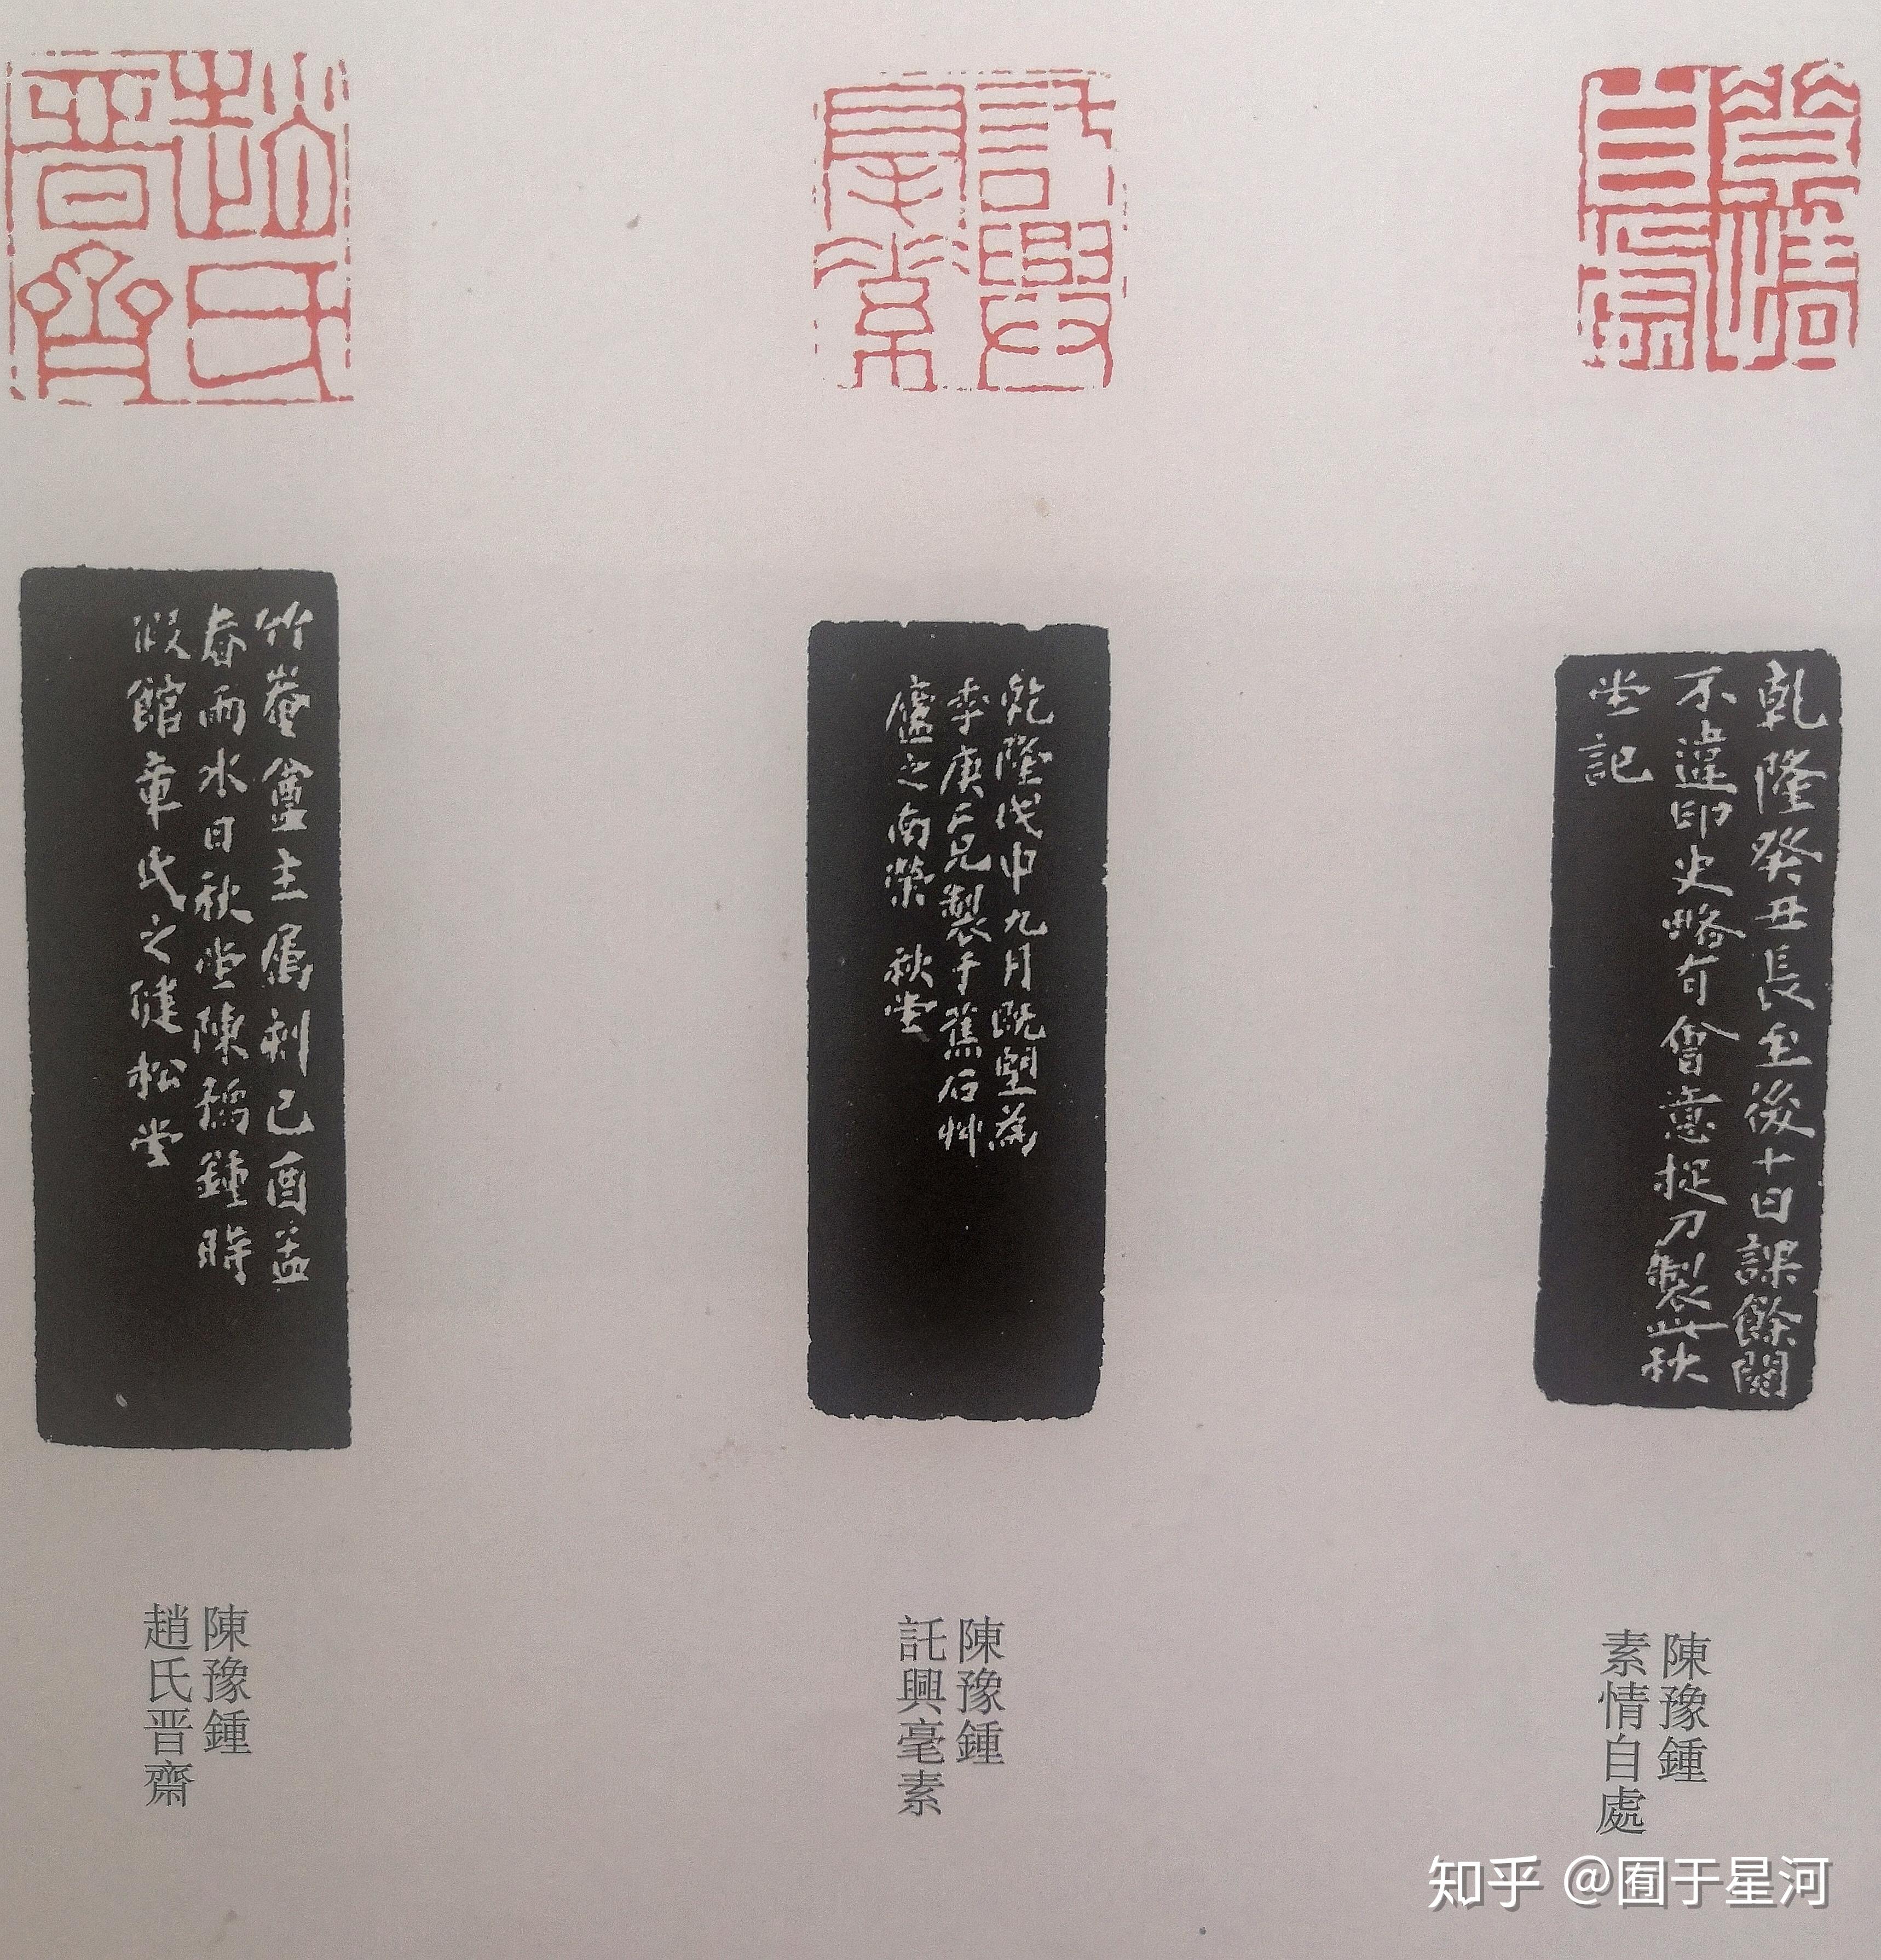 素情
自處
乾隆癸丑長至後十日課餘閱
不違印史略有會意捉刀製此秋
堂記
陳豫鍾
素情自處
託興
毫素
乾隆戊申九月既望為
庚兄製于蕉石艸
廬之南榮 秋堂
陳豫鍾
託興毫素
趙氏
晉齋
竹崦盦主屬制己酉孟
春雨水日秋堂陳豫鍾時
假館章氏之健松堂
陳豫鍾
趙氏晋齋
知乎 @囿于星河